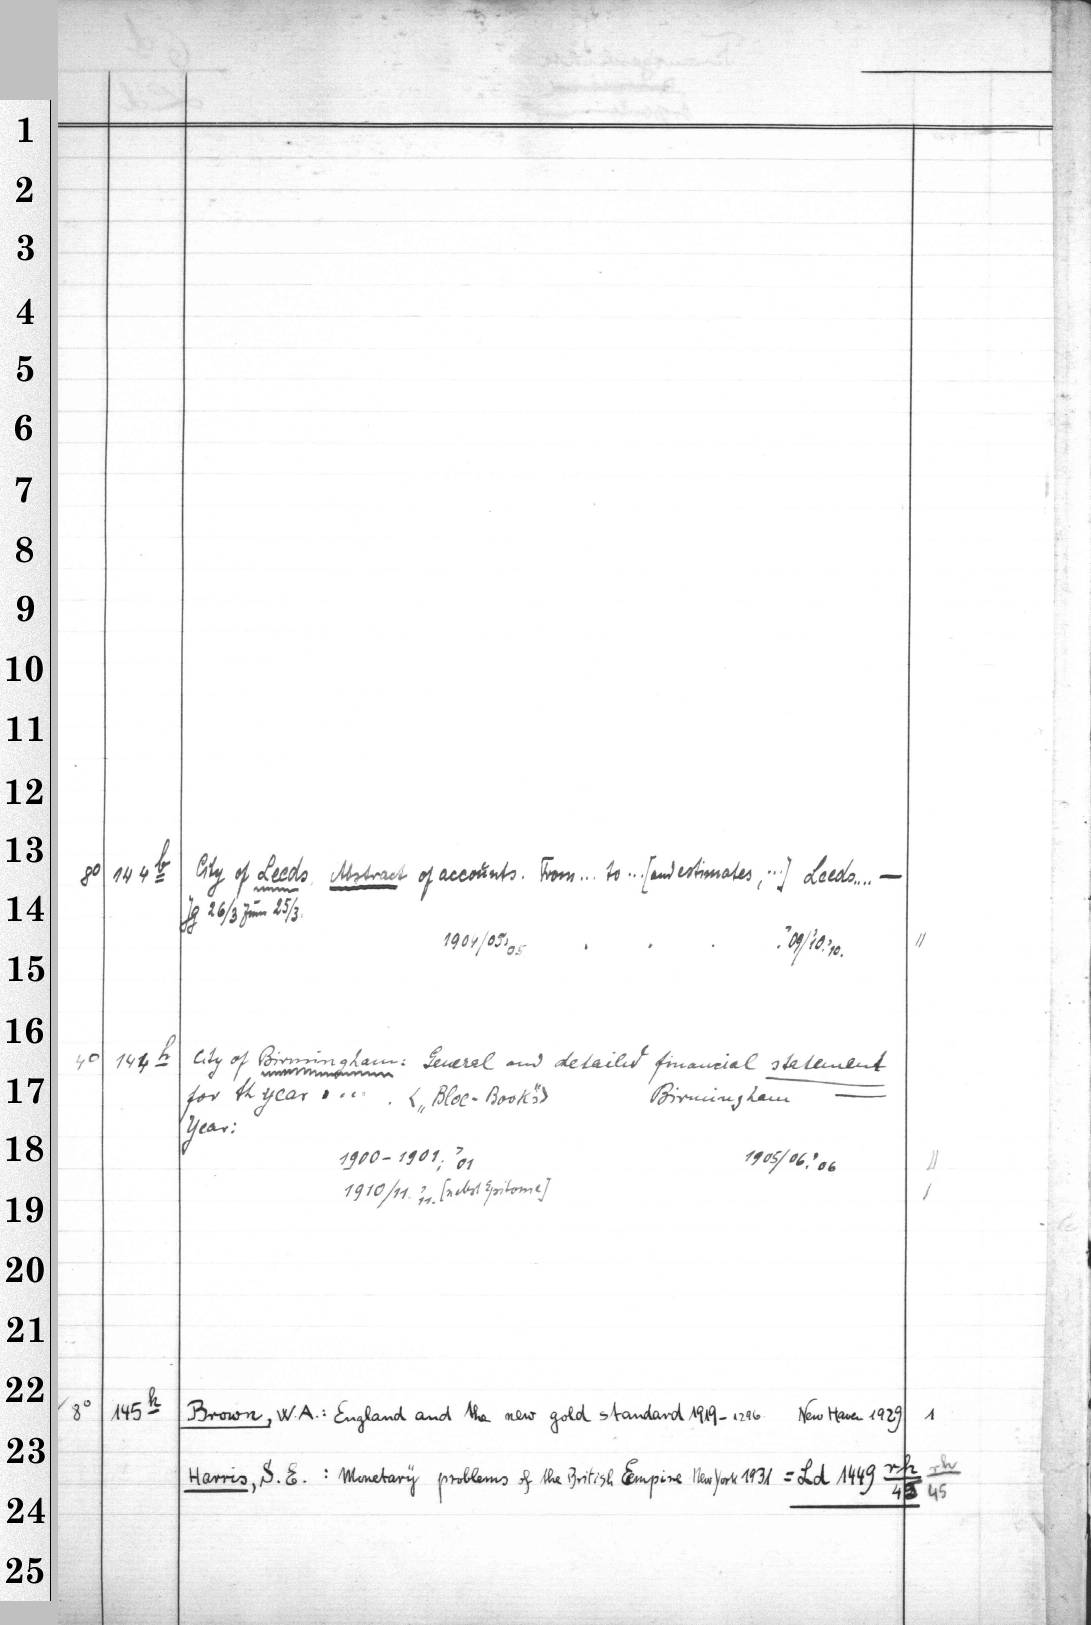 1
2
3
4
5
6
7
8
9
10
11
12
13
8° 144 h City of Leeds. Abstract of accounts. From ... to ... [and estimates, ...] Leeds.... —
14
Jg 26/3 zum 25/3.
1904/05; '05 . . . . '09/'10; '10. //
15
16
4° 144 h City of Birmingham: General and detailed financial statement
17
for th year .... . <„Bloc-Book"s> Birmingham
Year:
18
1900-1901; '01 1905/06; '06 //
1910/11. '11. [nebst Epitome] /
19
20
21
22
8° 145 h Brown, W.A.: England and the new gold standard 1919-1296 New Haven 1929 1
23
Harris, S.E.: Monetary problems of the British Empire New York 1931 = Ld 1449 rh/45 rh/45
24
25